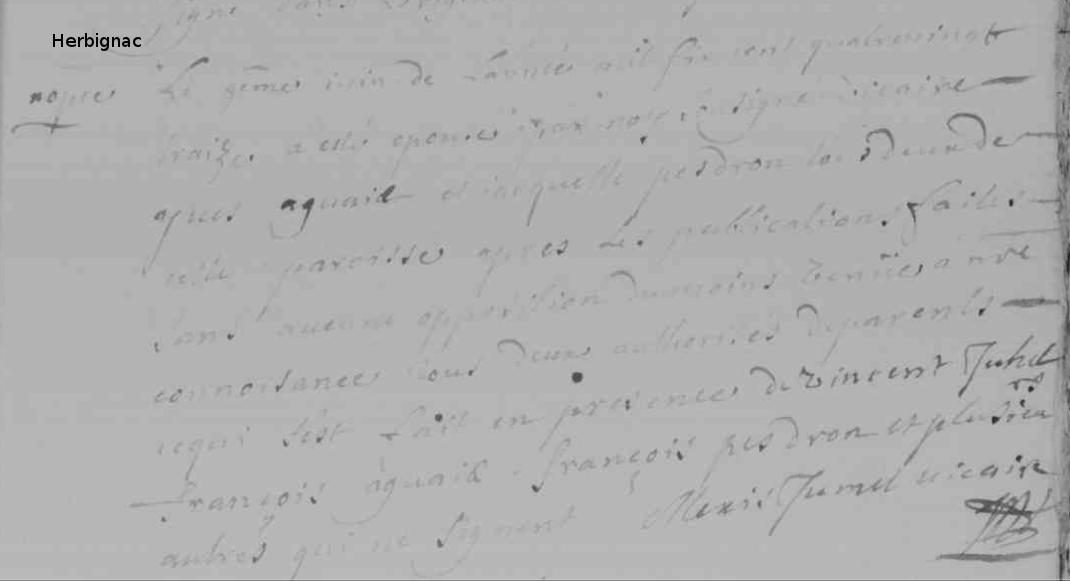 Herbignac
signe
nopces Le 9eme iuin de Lannee mil six cent quatrevingt
traize a esté epousé par noy vicaire
aguaist et iacquette pesdron tous deux de
cette paroisse apres les publications faites
sans aucune opposition dumoins venüe a nre
connoisance tous deux authorisés deparents
cequi sest fait en presence de vincent Juhel
françois aguaist françois pesdron et plusieurs
autres qui ne signent Alexis Jumel vicaire